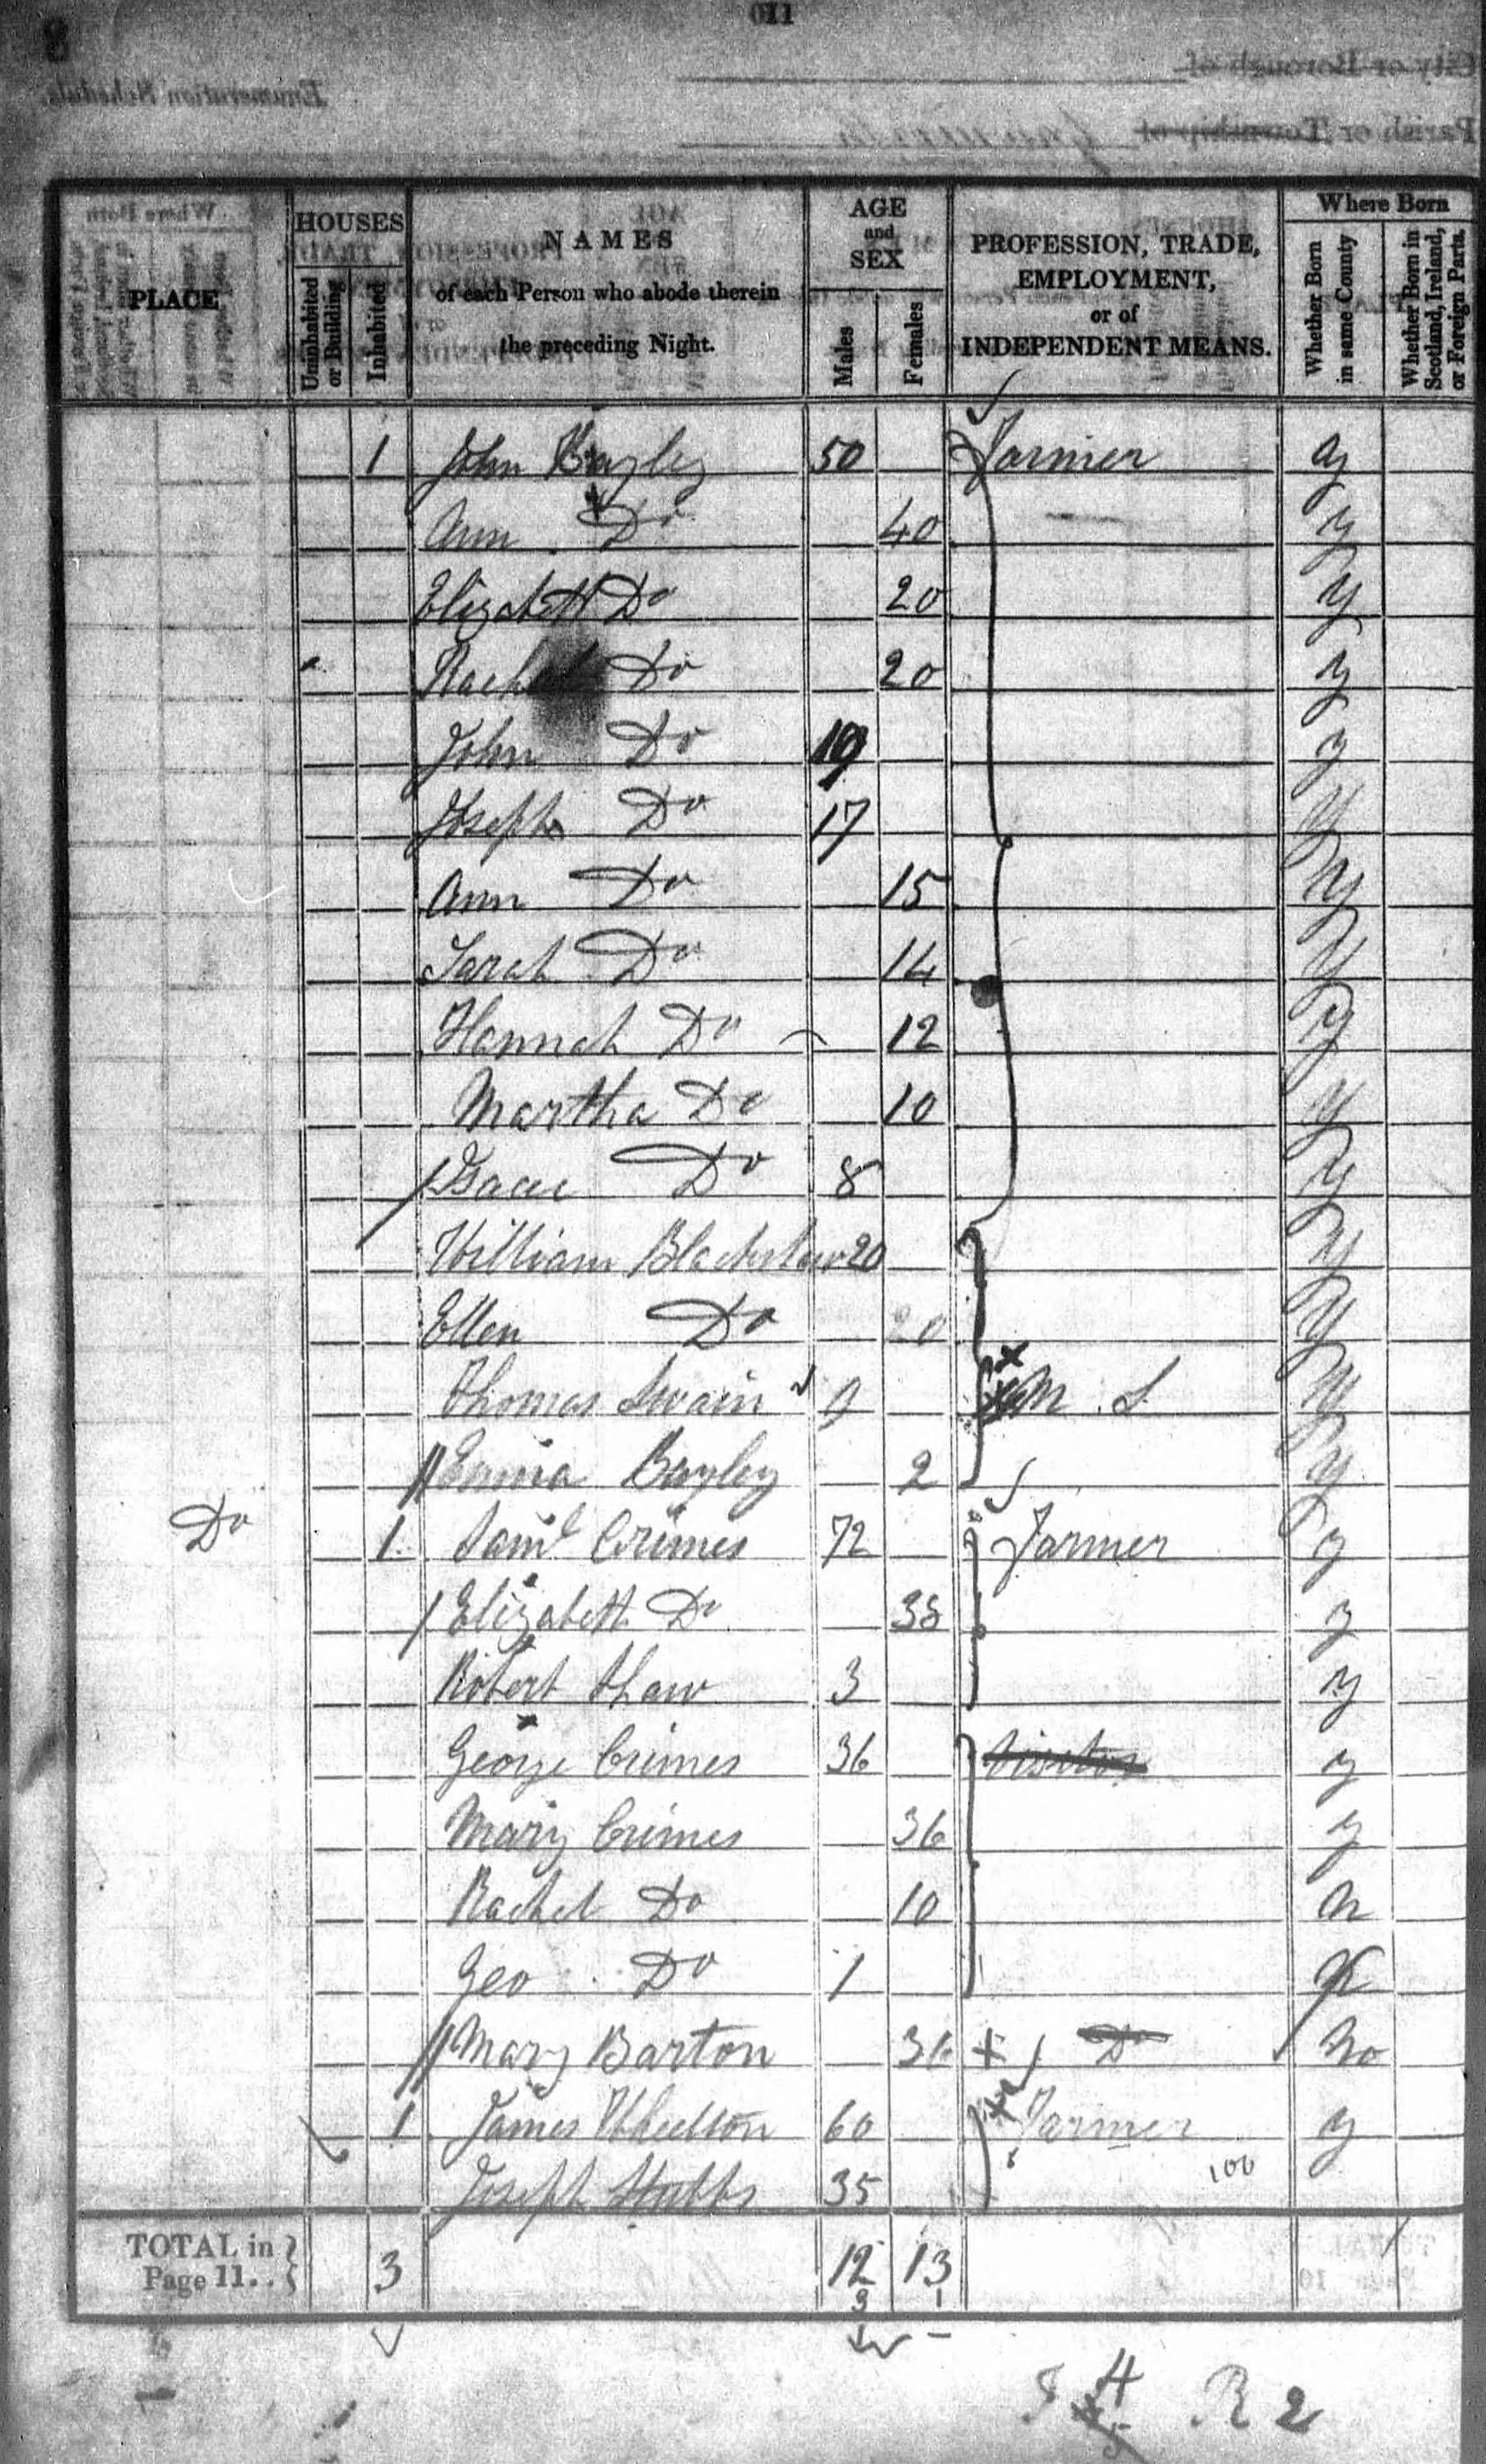 11
PLACE
HOUSES
Uninhabited or Building
Inhabited
NAMES
of each Person who abode therein
the preceding Night.
AGE
and
SEX
Males
Females
PROFESSION, TRADE,
EMPLOYMENT,
or of
INDEPENDENT MEANS.
Where Born
Whether Born in same County
Whether Born in Scotland, Ireland, or Foreign Parts.
1 John Bayley 50 Farmer y
Ann Do 40 y
Elizabeth Do 20 y
Rachel Do 20 y
John Do 19 y
Joseph Do 17 y
Ann Do 15 y
Sarah Do 14 y
Hannah Do 12 y
Martha Do 10 y
Isaac Do 8 y
William Blackshaw 20 y
Ellen Do 20 y
Thomas Swain 9 M. S. y
Emma Bayley 2 y
Do 1 Saml Crimes 72 Farmer y
Elizabeth Do 38 y
Robert Shaw 3 y
George Crimes 36 Visitor y
Mary Crimes 36 y
Rachel Do 10 n
Geo Do 1
Mary Barton 36 Do No
1 James Wheelton 60 Farmer y
Joseph Stubbs 35 100
TOTAL in Page 11.. 3 12 13
3 1
4 R 2